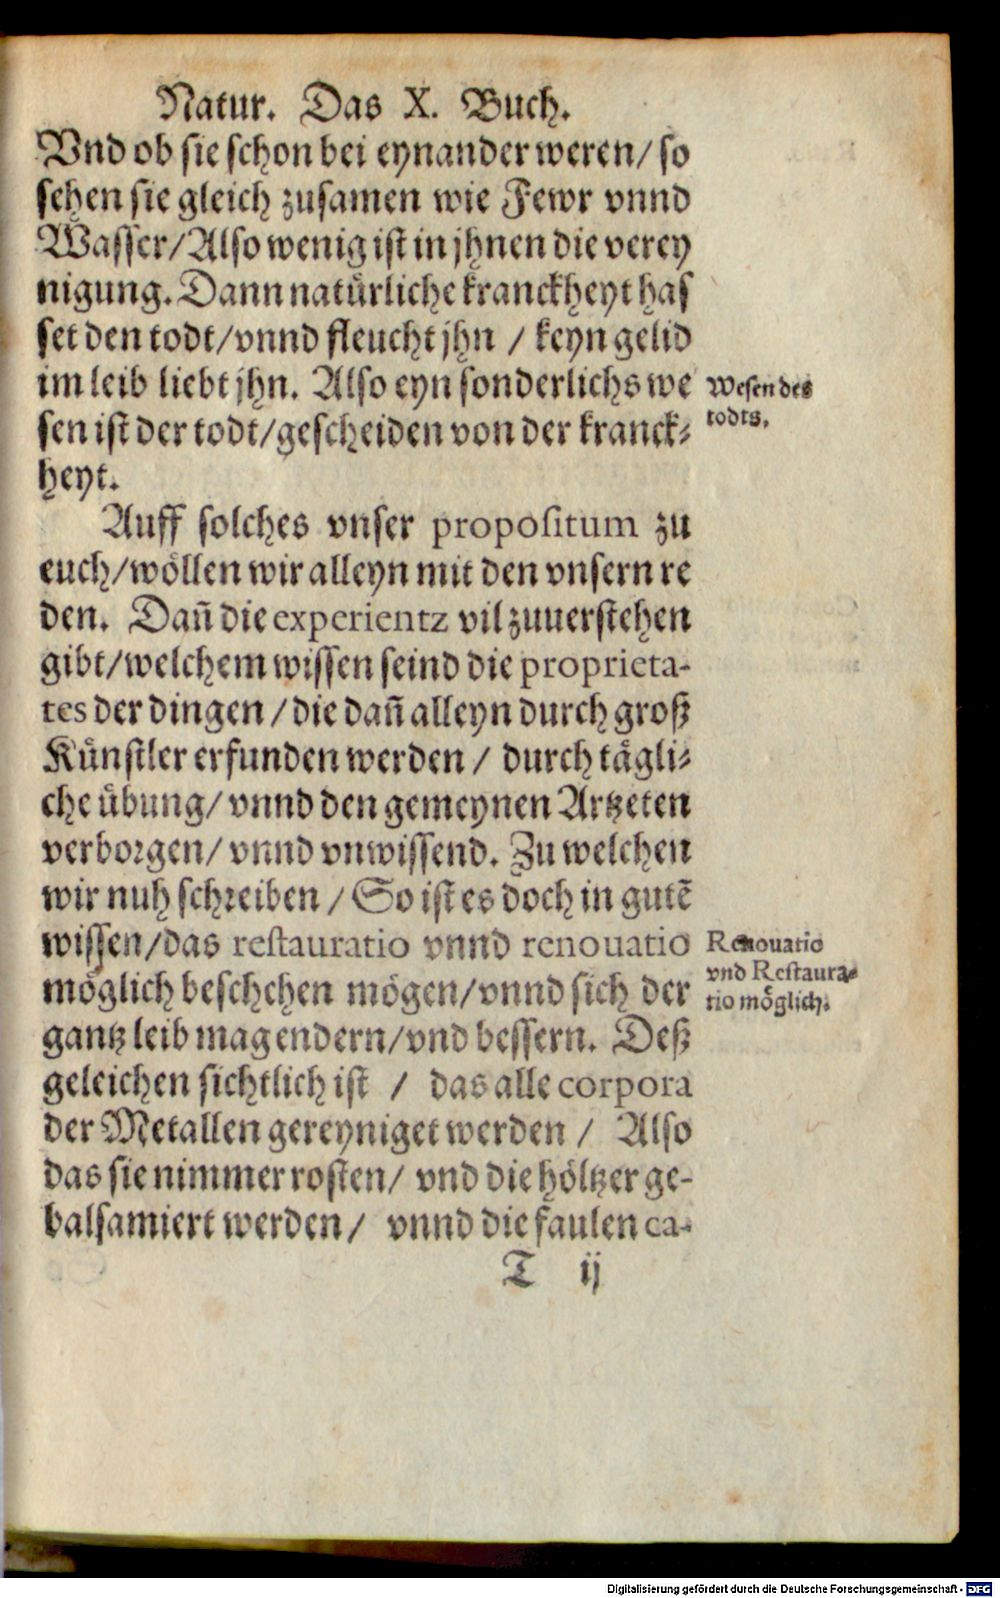 Natur. Das X. Buch.
Vnd ob sie schon bei eynander weren/ so
sehen sie gleich zusamen wie Fewr vnnd
Wasser/Also wenig ist in jhnen die verey
nigung. Dann natürliche kranckheyt has
set den todt/vnnd fleucht jhn / keyn gelid
im leib liebt jhn. Also eyn sonderlichs we
sen ist der todt/gescheiden von der kranck⸗
heyt.
Wesen des
todts.
Auff solches vnser propositum zu
euch/wöllen wir alleyn mit den vnsern re
den. Dañ die experientz vil zuuerstehen
gibt/welchem wissen seind die proprieta-
tes der dingen /die dañ alleyn durch groß
Künstler erfunden werden / durch tägli⸗
che übung/ vnnd den gemeynen Artzeten
verborgen/ vnnd vnwissend. Zu welchen
wir nuh schreiben / So ist es doch in gutẽ
wissen/das restauratio vnnd renouatio
möglich beschehen mögen/vnnd sich der
gantz leib mag endern/vnd bessern. Deß
geleichen sichtlich ist / das alle corpora
der Metallen gereyniget werden / Also
das sie nimmer rosten/ vnd die höltzer ge-
balsamiert werden/ vnnd die faulen ca-
Renouatio
vnd Restaura⸗
tio möglich.
T ij
Digitalisierung gefördert durch die Deutsche Forschungsgemeinschaft - DFG